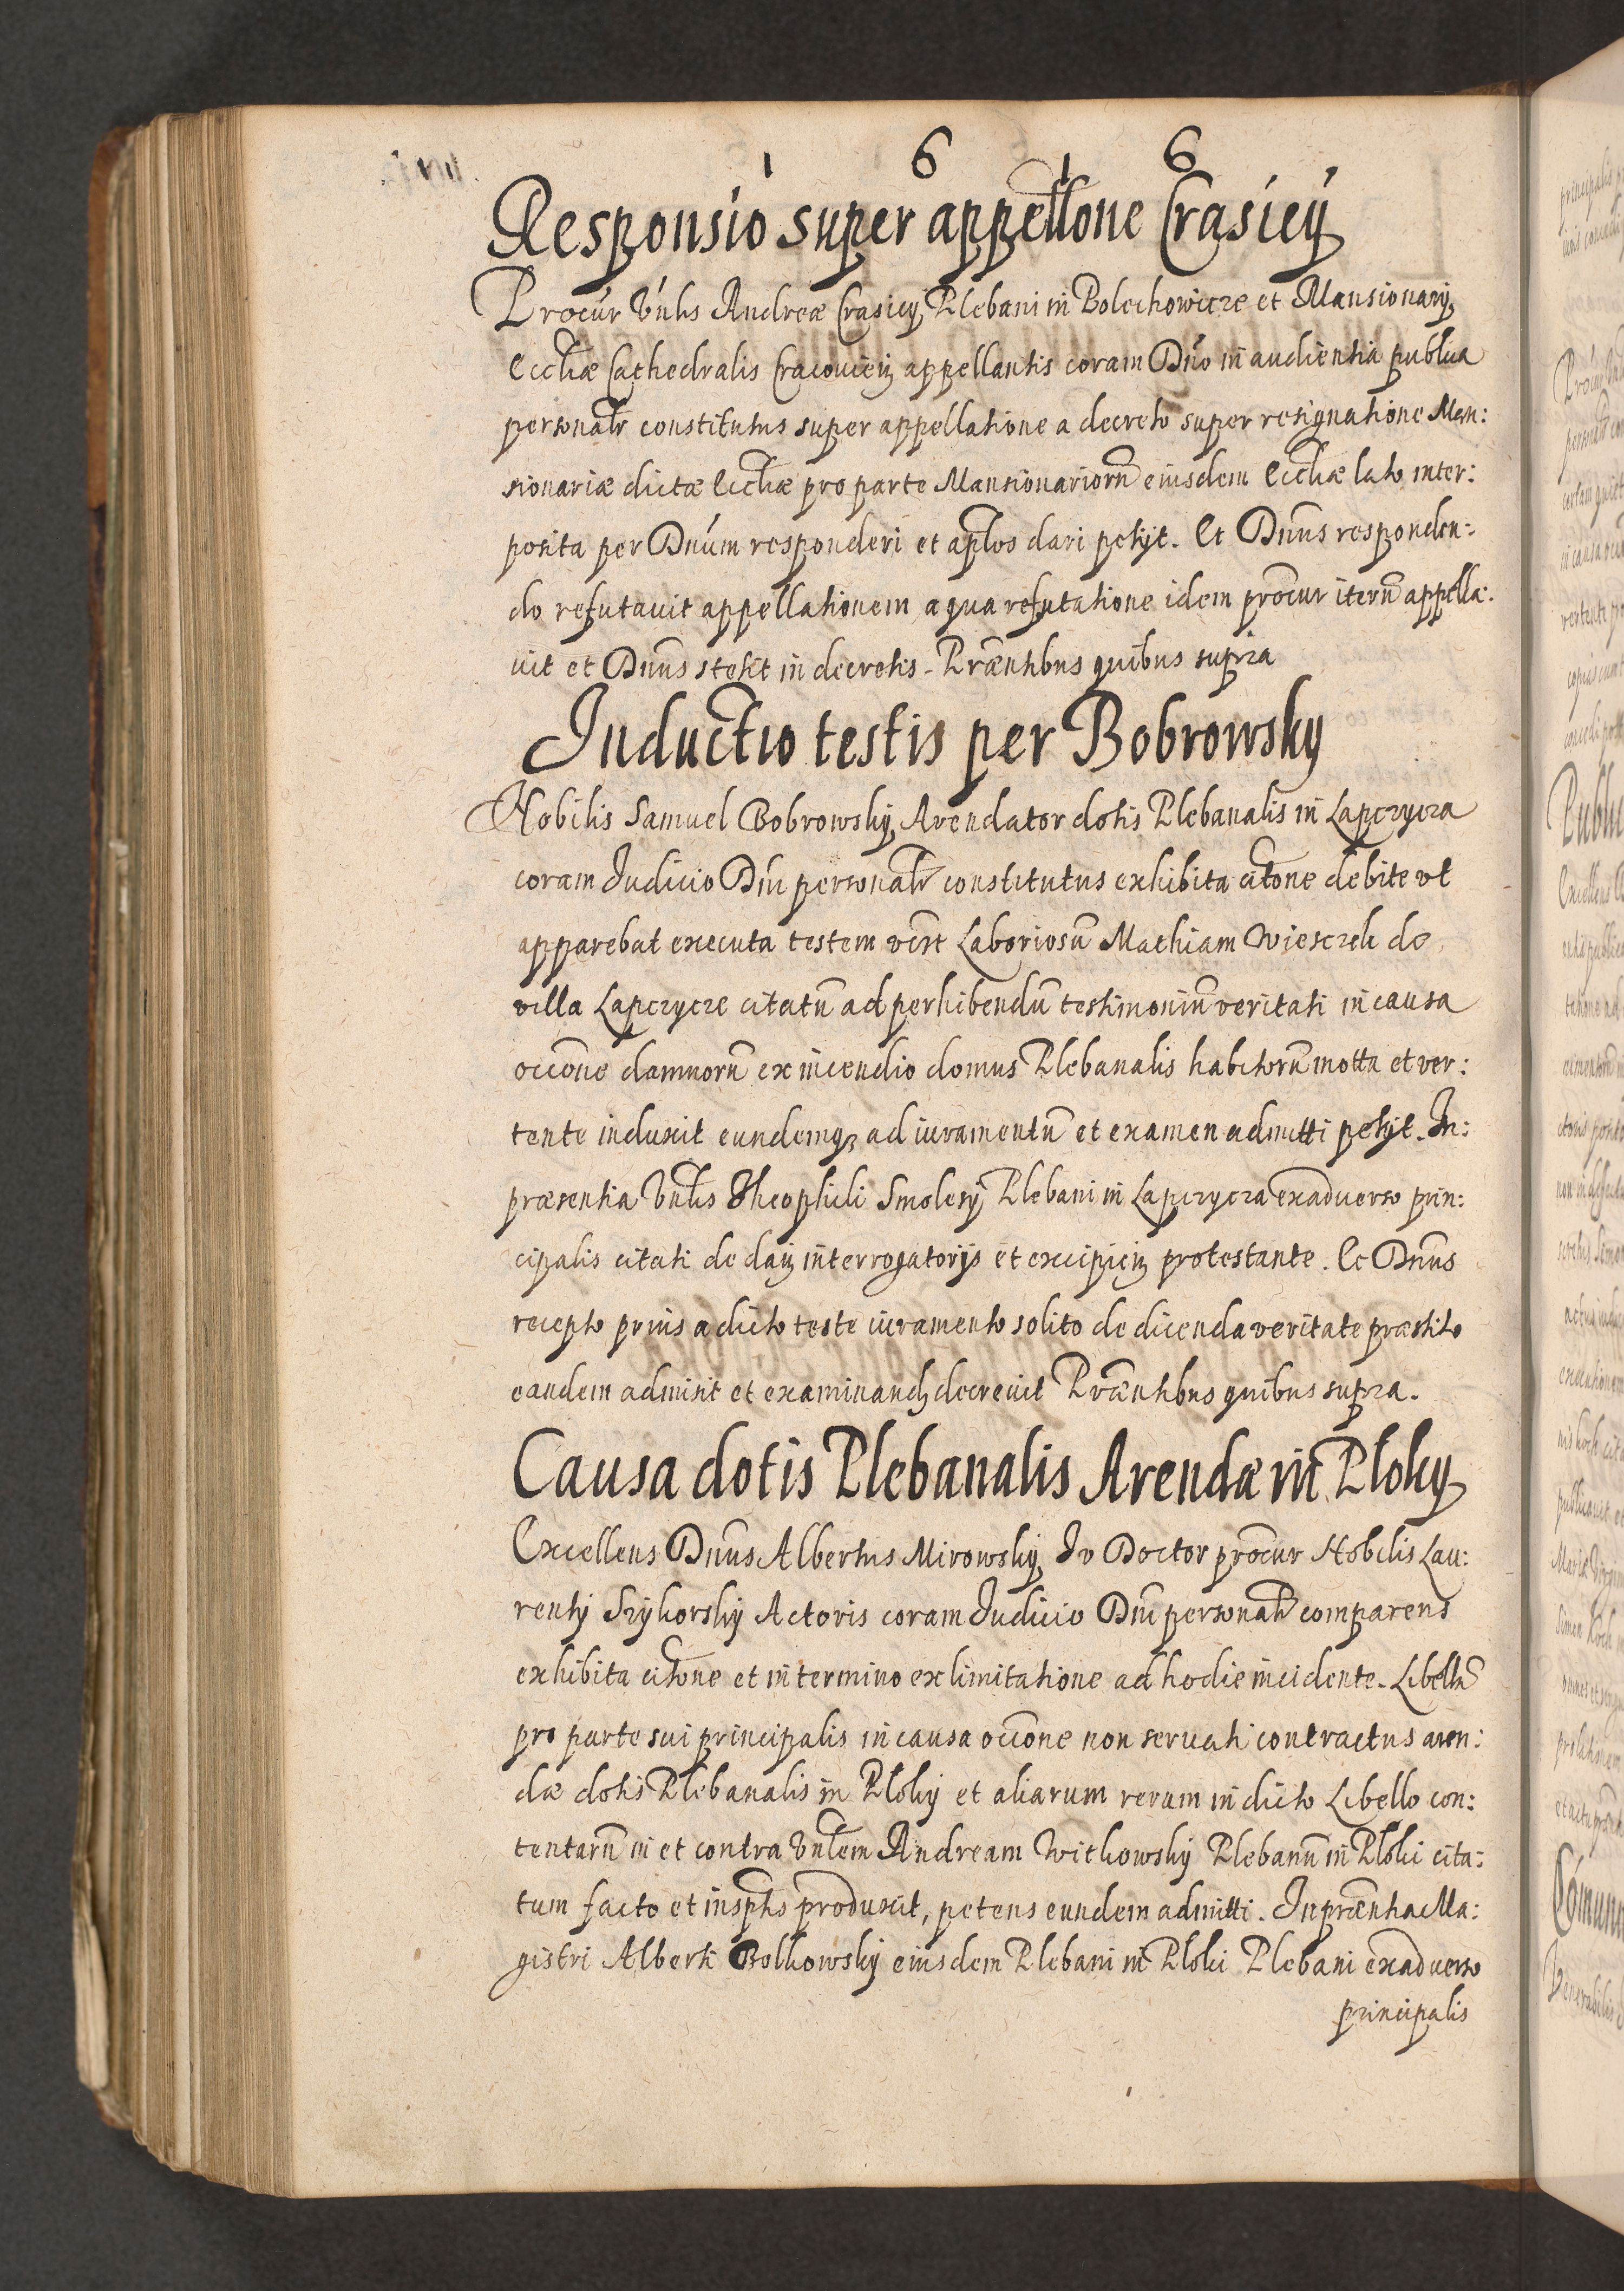 1 6 1 6
Responsio super appellone Crasicij
Procur Vnlis Andreæ Crasicij Plebani in Bolechowicze et Mansionarij
Eccliæ Cathedralis Cracouien appellantis coram Dno in audientia publica
personalr constitutus super appellatione a decreto super resignatione Man:
sionariæ dictæ Eccliæ pro parte Mansionariorū eiusdem Eccliæ lato inter:
posita per Dnum responderi et aplos dari petijt. Et Dnus responden:
do refutauit appellationem a qua refutatione idem procur iterū appella:
uit et Dnus stetit in decretis. Præntibus quibus supra
Inductio testis per Bobrowsky
Nobilis Samuel Bobrowsky Arendator dotis Plebanalis in Lapczycza
coram Judicio Dni personalr constitutus exhibita citone debite vt
apparebat executa testem Laboriosū Mathiam Wieszek de
villa Lapczycze citatū ad perhibendū testimoniū veritati in causa
occone damnorū ex incendio domus Plebanalis habitorū motta et ver:
tente induxit eundemq3 ad iuramentū et examen admitti petijt. In:
præsentia Vnlis Theophili Smolesij Plebani in Lapczycza exaduerso prin:
cipalis citati de interrogatorijs et excipien protestante. Et Dnus
recepto prius a dicto teste iuramento solito de dicenda veritate præstito
eandem admisit et examinand decreuit Præntibus quibus supra.
Causa dotis Plebanalis Arendæ in Ploky
Excellens Dnus Albertus Mirowsky Iv Doctor procur Nobilis Lau:
rentij Szykorsky Actoris coram Judicio Dni personalr comparens
exhibita citone et in termino ex limitatione ad hodie incidente. Libellū
pro parte sui principalis in causa occone non seruati contractus aren:
dæ dotis Plebanalis in Ploky et aliarum rerum in dicto Libello con:
tentarū in et contra Vnlem Andream Witkowsky Plebanū in Ploki cita:
tum facto et inscptis produxit, petens eundem admitti. In præntia Ma:
gistri Alberti Bolkowsky eiusdem Plebani in Ploki Plebani exaduerso
principalis